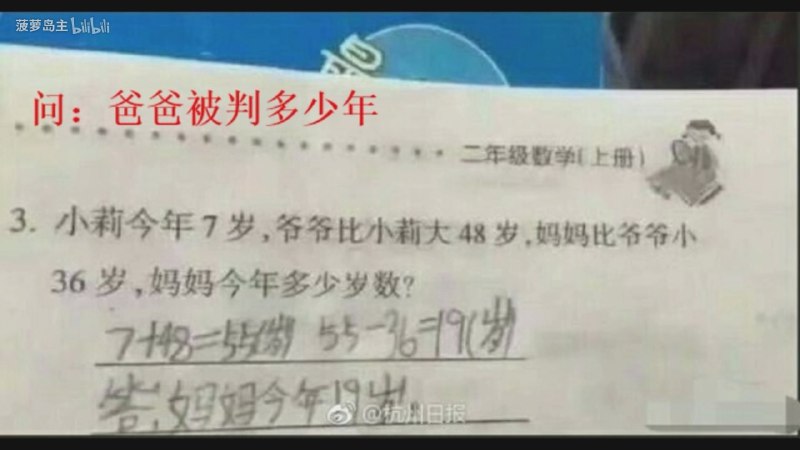 菠萝岛主 bilibili
问：爸爸被判多少年
二年级数学(上册)
3. 小莉今年7岁,爷爷比小莉大48岁,妈妈比爷爷小
36岁,妈妈今年多少岁数?
7+48=55(岁) 55-36=19(岁)
答:妈妈今年19岁。
@杭州日报